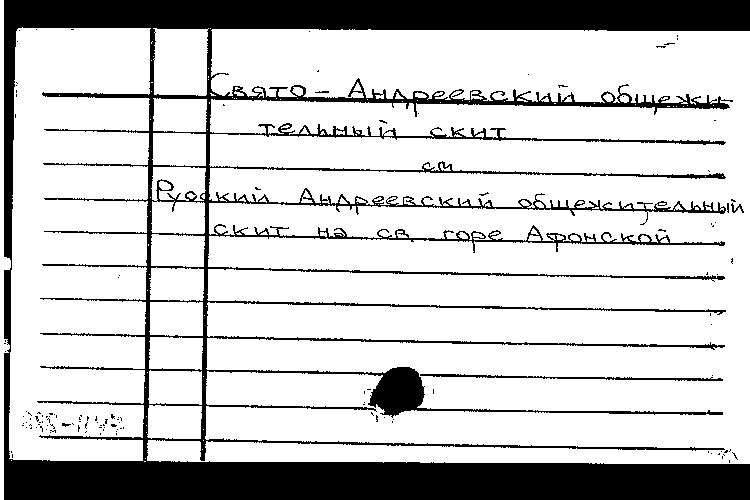 Свято-Андреевский общежи-
тельный скит
см
Русский Андреевский общежительный
скит на св. горе Афонской